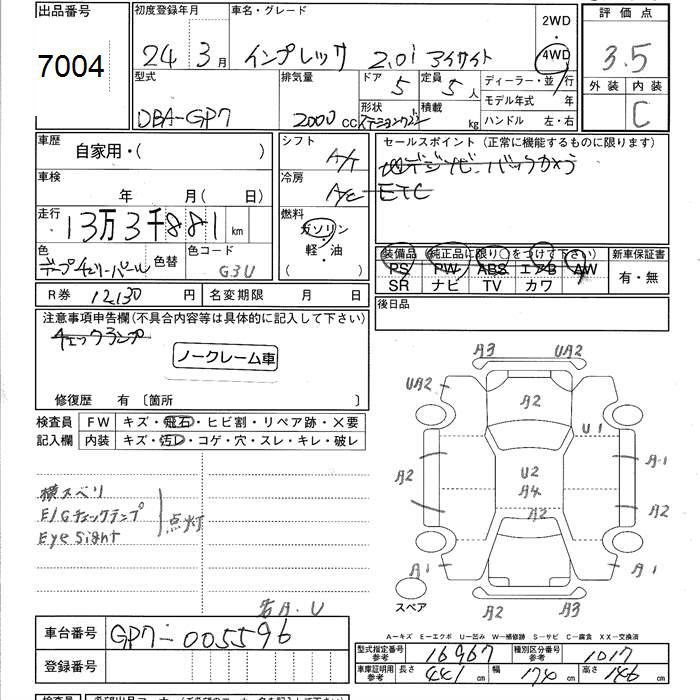 出品番号 初度登録年月 車名・グレード 2WD 評価点
7004 24年 3月 インプレッサ 2.0i アイサイト ・ 4WD 3.5
型式 排気量 ドア 5 定員 5人 ディーラー・並行 外装 内装
DBA-GP7 2000cc 形状 ステーションワゴン 積載 kg モデル年式 年 C
ハンドル 左・右
車歴 自家用・( ) シフト A/T セールスポイント (正常に機能するものに限ります)
車検 年 月(日) 冷房 A/C ETC
走行 13万3千881km 燃料 ガソリン・軽・油 ( )
色 ディープチェリーパール 色替 色コード G3U
装備品 (純正品に限り○をつけて下さい) 新車保証書
PS PW ABS エアB AW 有・無
SR ナビ TV カワ
R券 12,130円 名変期限 月 日 後日品
注意事項申告欄(不具合内容等は具体的に記入して下さい)
チェックランプ
ノークレーム車
修復歴 有 〔箇所 〕
検査員 FW キズ・飛石・ヒビ割・リペア跡・×要
記入欄 内装 キズ・汚レ・コゲ・穴・スレ・キレ・破レ
A3 UA2
UA2 A2
U1
A2 U2 A1
A4
A2 A2
A1 A1
A2 A3
スペア
横スベリ
E/Gチェックランプ 点灯
Eye Sight
A.U
A-キズ E-エクボ U-凹み W-補修跡 S-サビ C-腐食 XX-交換済
車台番号 GP7-005596
登録番号
型式指定番号 参考 16967 種別区分番号 参考 1017
車庫証明用 参考 長さ 441cm 幅 174cm 高さ 146cm